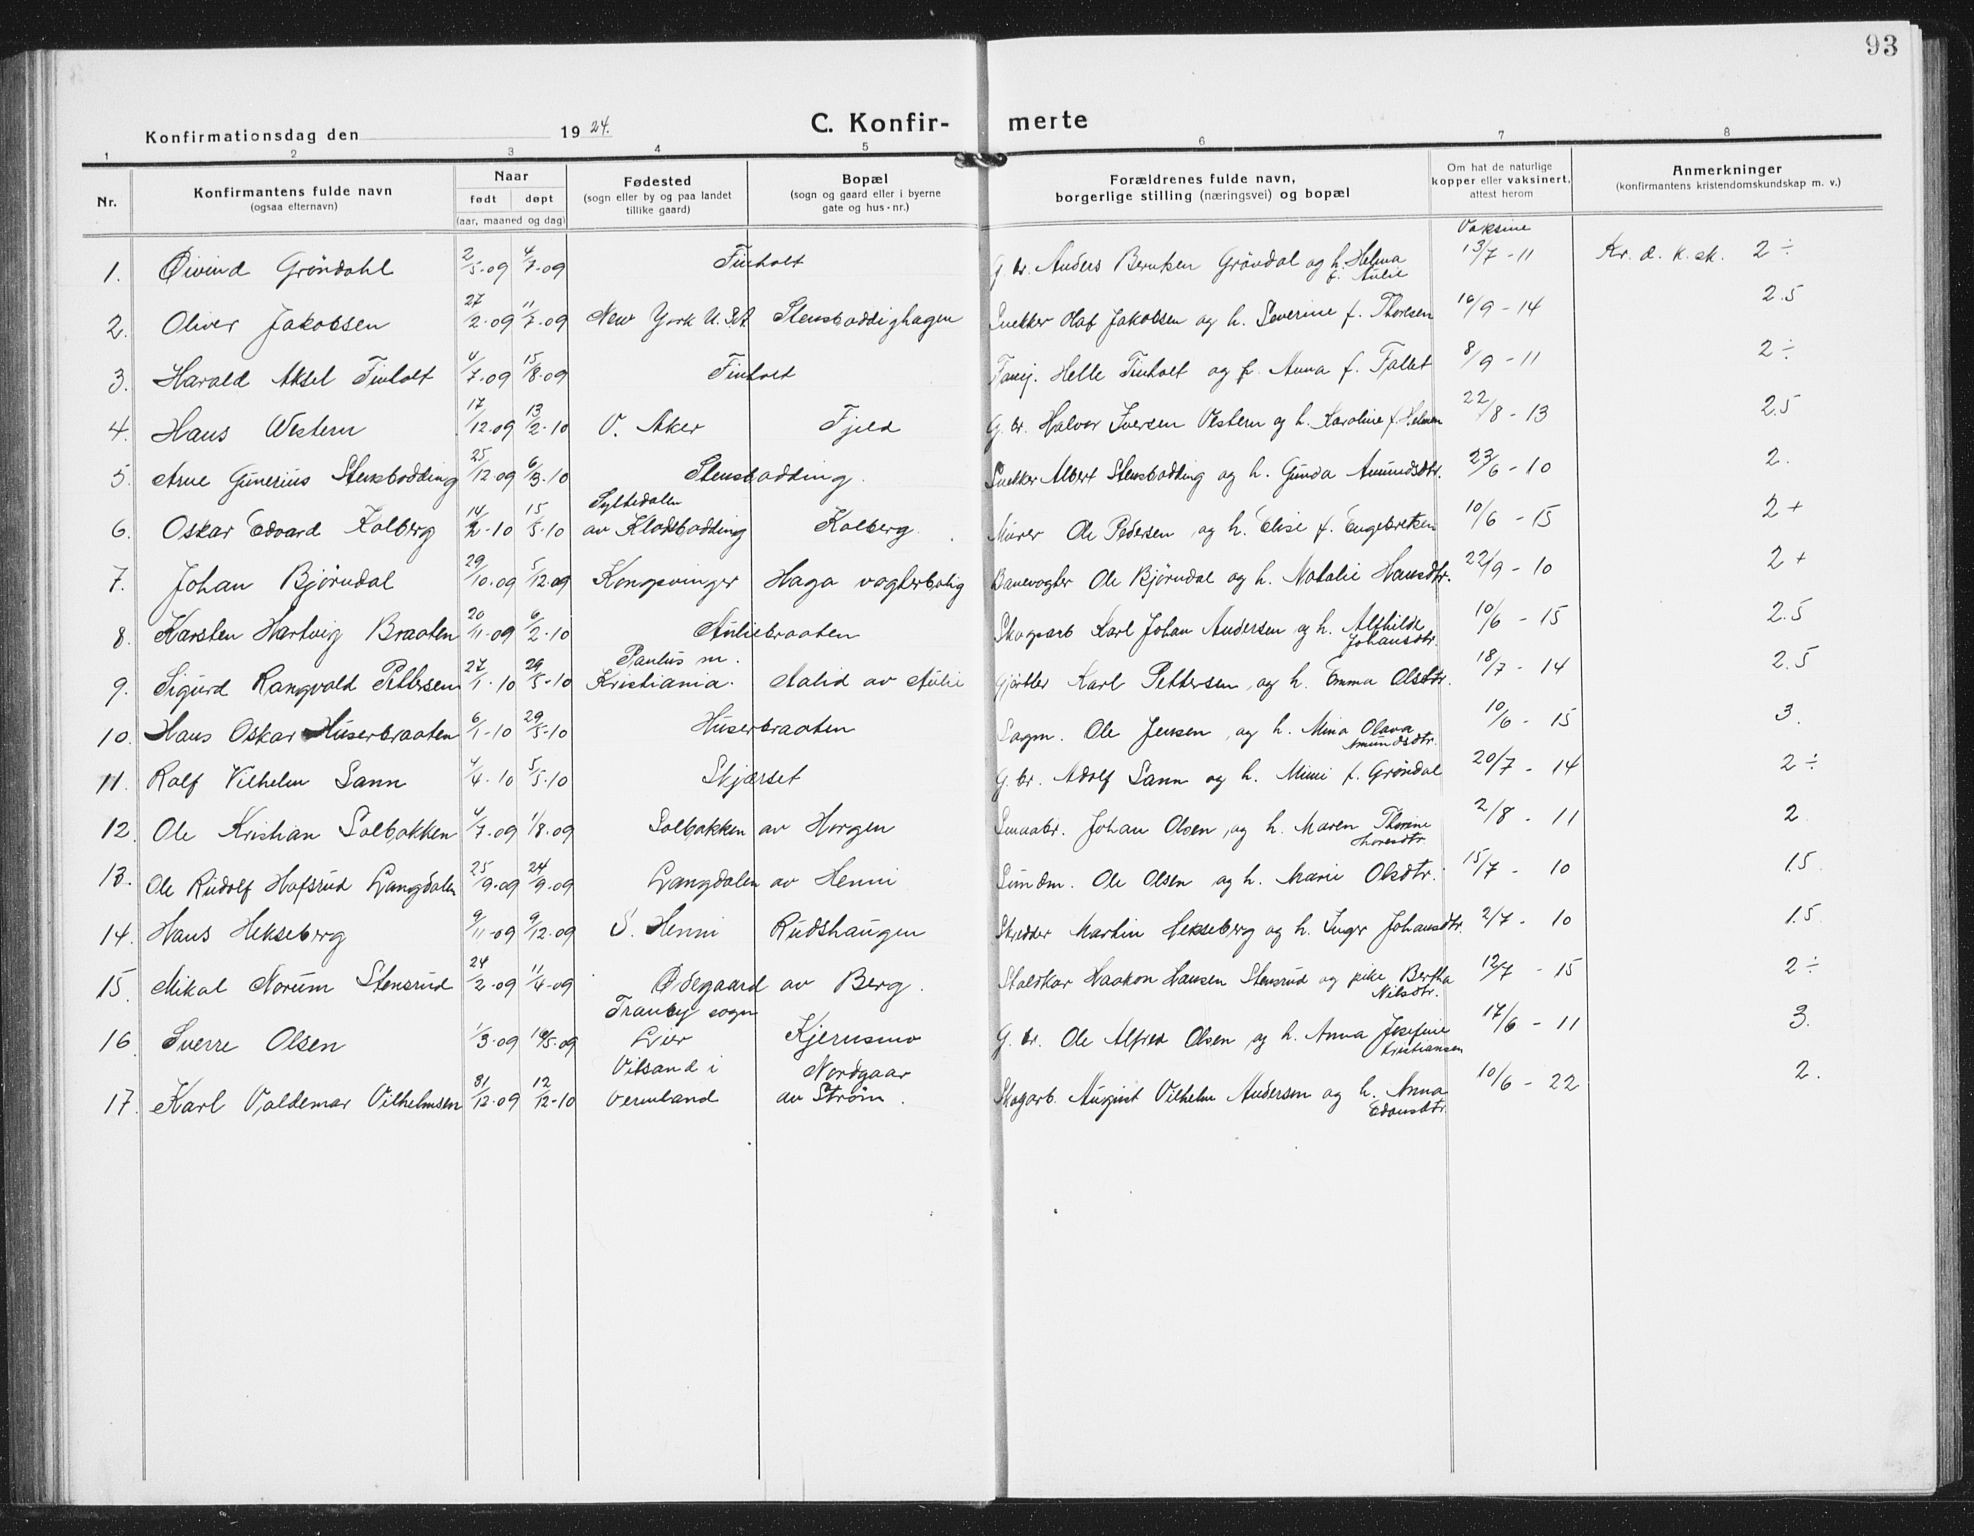 93
Konfirmationsdag den 1924. C. Konfir- merte
1 2 3 4 5 6 7 8
Nr.
Konfirmantens fulde navn
(ogsaa efternavn)
Naar
født døpt
(aar, maaned og dag)
Fødested
(sogn eller by og paa landet
tillike gaard)
Bopæl
(sogn og gaard eller i byerne
gate og hus-nr.)
Forældrenes fulde navn,
borgerlige stilling (næringsvei) og bopæl
Om hat de naturlige
kopper eller vaksinert,
attest herom
Anmerkninger
(konfirmantens kristendomskundskap m. v.)
Vaksine
1. Øivind Gröndahl 2/5-09 4/7-09 Finholt G. br. Anders Berntsen Gröndal og h. Helma f. Aulie 13/7-11 Kr. d. k. sk. 2 ÷
2. Oliver Jakobsen 27/2-09 11/7-09 New York U.S.A Stensboddighagen Snekker Olaf Jakobsen og h. Severine f. Thoresen 10/9-14 2.5
3. Harald Aksel Finholt 4/7-09 15/8-09 Finholt Helle Finholt og h. Anna f. Fallet 8/9-11 2 ÷
4. Hans Western 17/12.09 13/2-10 V. Aker Fjeld G. br. Halvor Iversen Western og h. Karoline f. Helmen 22/8-13 2.5
5. Arne Gunerius Stensbodding 25/12 09 6/3.10 Stensbodding. Snekker Albert Stensbodding og h. Gunda Amundsdtr. 23/6-10 2.
6. Oskar Edvard Kolberg 14/2-10 15/5-10 Syltedalen
av Klodsbodding Kolberg. Murer Ole Pedersen og h. Elise f. Engebretsen 10/6-15 2+
7. Johan Bjørndal 29/10.09 5/12.09 Kongsvinger Haga vogterbolig Banevogter Ole Bjørndal og h. Natalie Hansdtr. 22/9-10 2+
8. Karsten Hartvig Braaten 20/11-09 6/2-10 Auliebraaten Skogsarb Karl Johan Andersen og h. Althilde Johansdtr. 10/6-15 2.5
9. Sigurd Rangvald Pettersen 27/1-10 29/5-10 Paulus m.
Kristiania. Aalid av Aulie Gjørtler Karl Pettersen og h. Emma Olsdtr. 18/7-14 2.5
10. Hans Oskar Huserbraaten 6/1-10 29/5-10 Huserbraaten Sagm. Ole Jensen og h. Mina Olava Amundsdtr. 10/6-15 3.
11. Rolf Vilhelm Sann 4/4-10 5/5-10 Skjærset G. br. Adolf Sann og h. Mimi f. Grøndal 20/7-14 2 ÷
12. Ole Kristian Solbakken 4/7-09 1/8-09 Solbakken av Horgen Smaabr. Johan Olsen og h. Maren Thorine Thoresdtr. 2/8-11 2
13. Ole Rudolf Hofsrud Langdalen 25/9-09 24/9-09 Langdalen av Henni Ole Olsen og h. Marie Olsdtr. 15/7-10 1.5
14. Hans Hekseberg 9/11-09 9/12-09 S. Henni Rudshaugen Skredder Martin Hekseberg og h. Inger Johansdtr. 2/7-10 1.5
15. Mikal Norum Stensrud 24/2-09 11/4-09 Ødegaard av Berg. Staldkar Haakon Hansen Stensrud og pike Bertha Nilsdtr. 12/7-15 2 ÷
16. Sverre Olsen 1/3-09 16/5-09 Tranby sogn
Lier Kjernsmo G. br. Ole Alfred Olsen og h. Anna Josefine Kristiansen 17/6-11 3.
17. Karl Valdemar Vilhelmsen 31/12-09 12/12-10 Vitsand i
Vermland Nordgaar
av Strøm. Skogarb. August Vilhelm Andersen og h. Anna Edvardsdtr. 10/6-22 2.